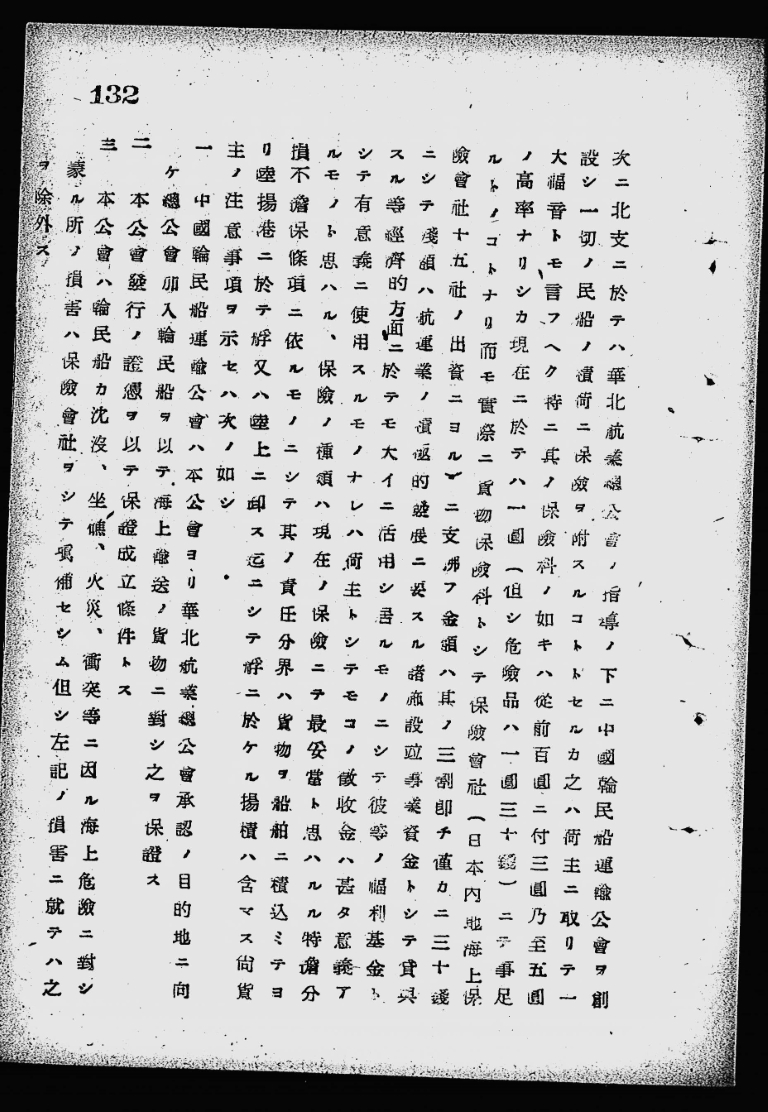 132
次ニ北支ニ於テハ華北航業總公會ノ指導ノ下ニ中國輪民船運輸公會ヲ創
設シ一切ノ民船ノ積荷ニ保險ヲ附スルコトトセルカ之ハ荷主ニ取リテ一
大福音トモ言フヘク特ニ其ノ保險料ノ如キハ從前百圓ニ付三圓乃至五圓
ノ高率ナリシカ現在ニ於テハ一圓（但シ危險品ハ一圓三十錢）ニテ事足
ルトノコトナリ而モ實際ニ貨物保險料トシテ保險會社（日本內地海上保
險會社十五社ノ出資ニヨル）ニ支拂フ金額ハ其ノ三割卽チ僅カニ三十錢
ニシテ殘額ハ航運業ノ積極的發展ニ要スル諸施設竝事業資金トシテ貸與
スル等經濟的方面ニ於テモ大イニ活用シ居ルモノニシテ彼等ノ福利基金ト
シテ有意義ニ使用スルモノナレハ荷主トシテモコノ徵收金ハ甚タ意義ア
ルモノト思ハル、保險ノ種類ハ現在ノ保險ニテ最妥當ト思ハルル特擔分
損不擔保條項ニ依ルモノニシテ其ノ責任分界ハ貨物ヲ船舶ニ積込ミテヨ
リ陸揚港ニ於テ艀又ハ陸上ニ卸ス迄ニシテ艀ニ於ケル揚積ハ含マス尙貨
主ノ注意事項ヲ示セハ次ノ如シ
一　中國輪民船運輸公會ハ本公會ヨリ華北航業總公會承認ノ目的地ニ向
ケ總公會加入輪民船ヲ以テ海上輸送ノ貨物ニ對シ之ヲ保證ス
二　本公會發行ノ證憑ヲ以テ保證成立條件トス
三　本公會ハ輪民船カ沈沒、坐礁、火災、衝突等ニ因ル海上危險ニ對シ
蒙ル所ノ損害ハ保險會社ヲシテ塡補セシム但シ左記ノ損害ニ就テハ之
ヲ除外ス